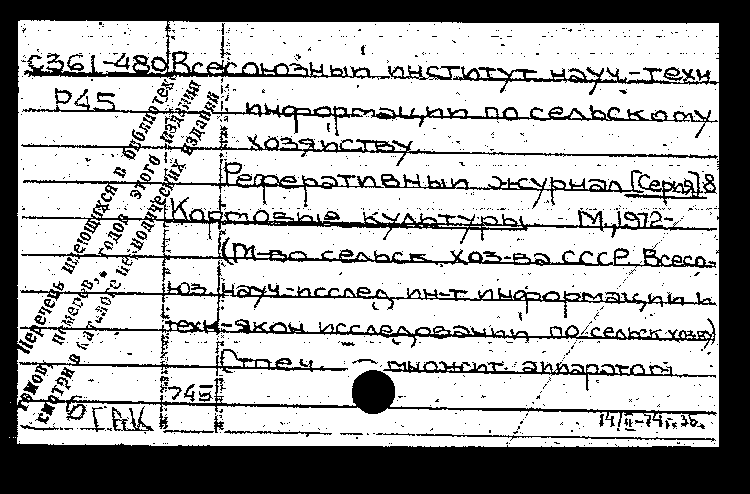 С361-480 Всесоюзный институт науч.-техн
Р45 информации по сельскому
хозяйству
Реферативный журнал [Серия] 8
Кормовые культуры. - М., 1972-
(М-во сельск. хоз-ва СССР. Всесо-
юз. науч.-исслед. ин-т информации и
техн-экон исследований по сельск. хозву)
Отпеч. множит. аппаратом
Перечень имеющихся в библиотеке
томов, номеров, годов этого издания
смотри в каталоге периодических изданий
745
Б ГАК
14/II-74г.